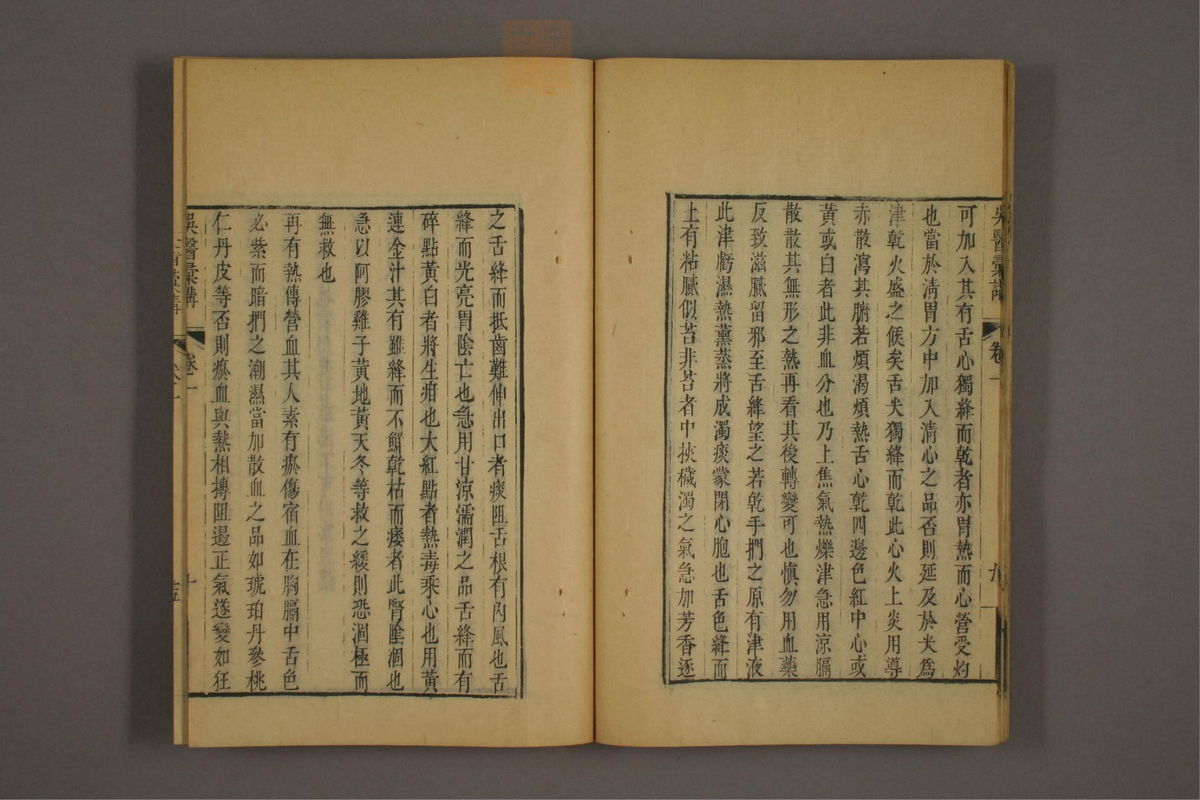 吳醫彙講
卷一
九
可加入其有舌心獨絳而乾者亦胃熱而心營受灼
也當於淸胃方中加入淸心之品否則延及於尖爲
津乾火盛之候矣舌尖獨絳而乾此心火上炎用導
赤散瀉其腑若煩渴煩熱舌心乾四邊色紅中心或
黃或白者此非血分也乃上焦氣熱爍津急用涼膈
散散其無形之熱再看其後轉變可也愼勿用血藥
反致滋膩留邪至舌絳望之若乾手捫之原有津液
此津虧濕熱薰蒸將成濁痰蒙閉心胞也舌色絳而
上有粘膩似苔非苔者中挾穢濁之氣急加芳香逐
之舌絳而抵齒難伸出口者痰阻舌根有內風也舌
絳而光亮胃陰亡也急用甘涼濡潤之品舌絳而有
碎點黃白者將生疳也大紅點者熱毒乘心也用黃
連金汁其有雖絳而不鮮乾枯而痿者此腎陰涸也
急以阿膠雞子黃地黃天冬等救之緩則恐涸極而
無救也
再有熱傳營血其人素有瘀傷宿血在胸膈中舌色
必紫而暗捫之潮濕當加散血之品如琥珀丹參桃
仁丹皮等否則瘀血與熱相摶阻遏正氣遂變如狂
吳醫彙講
卷一
十